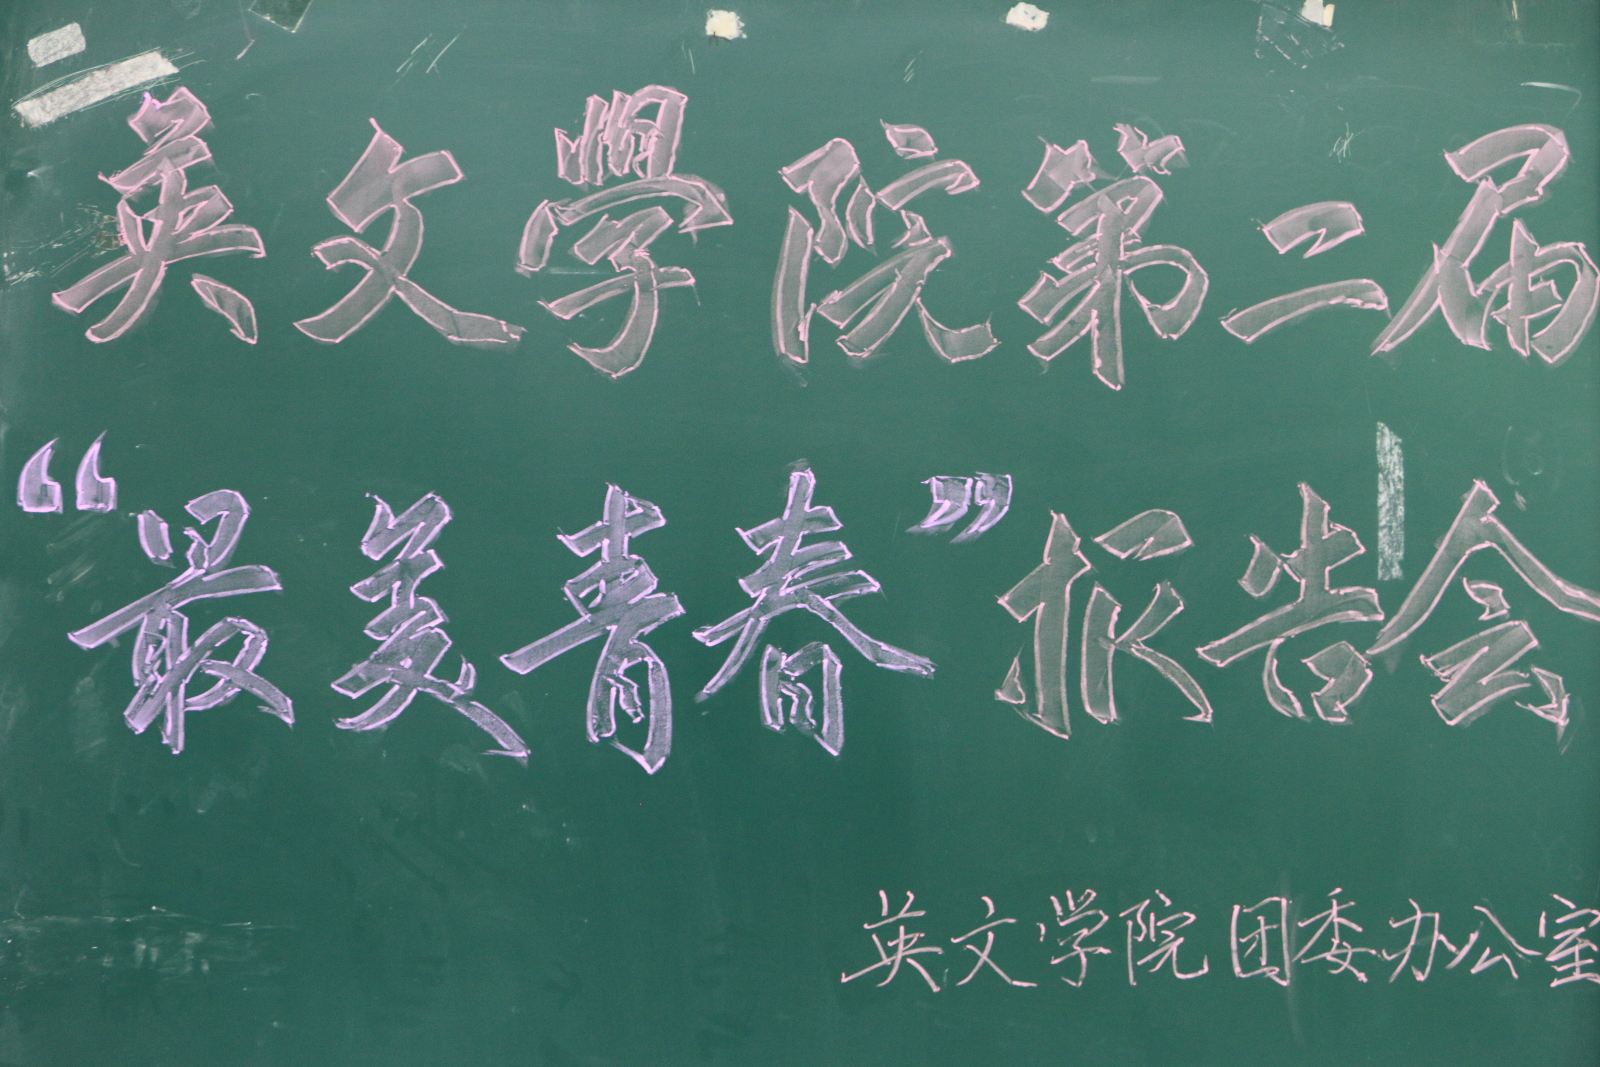 英文學院第二届
“最美青春”报告会
英文学院团委办公室